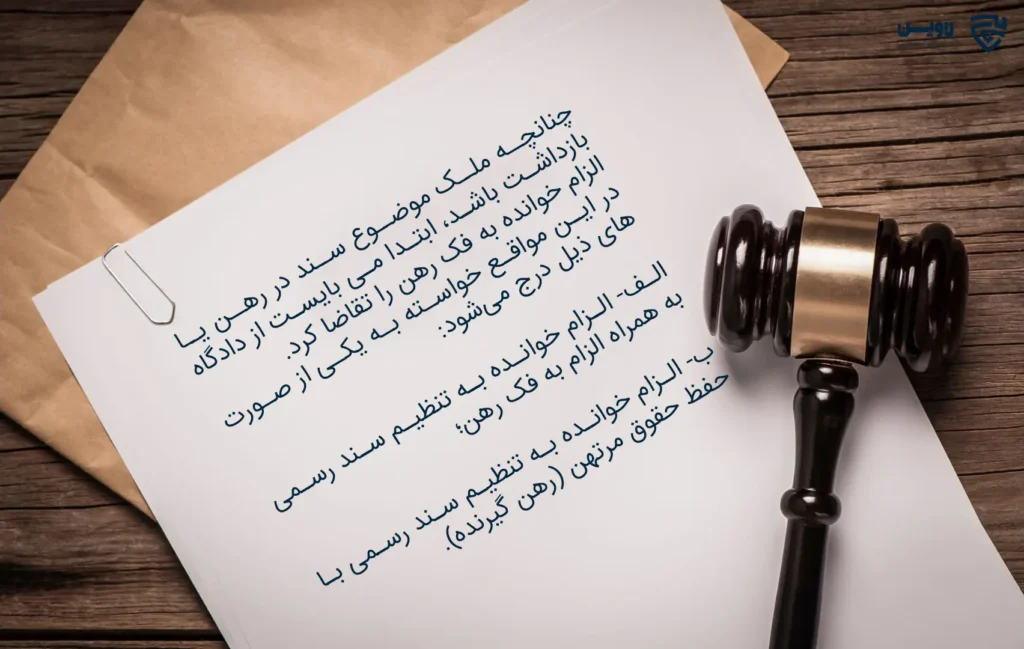 لاوین
چنانچه ملک موضوع سند در رهن یا
بازداشت باشد، ابتدا می بایست از دادگاه
الزام خوانده به فک رهن را تقاضا کرد.
در این مواقع خواسته به یکی از صورت
های ذیل درج می‌شود:
الف- الزام خوانده به تنظیم سند رسمی
به همراه الزام به فک رهن؛
ب- الزام خوانده به تنظیم سند رسمی با
حفظ حقوق مرتهن (رهن گیرنده).